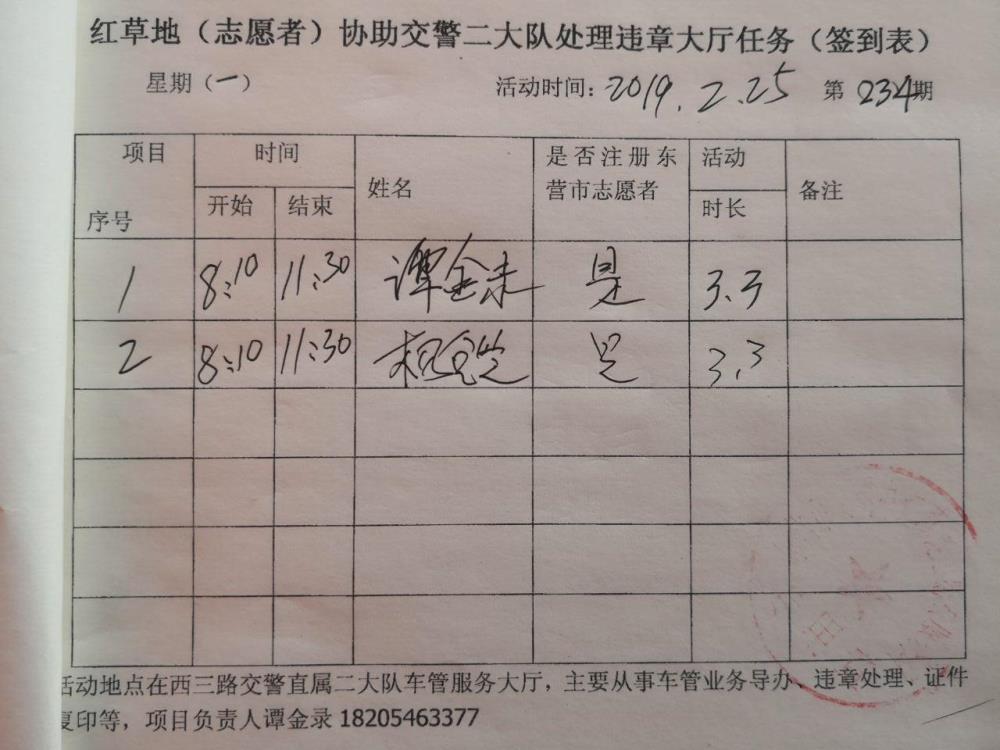 红草地（志愿者）协助交警二大队处理违章大厅任务（签到表）
星期（一） 活动时间：2019.2.25 第234期
项目 时间 姓名 是否注册东 活动 备注
营市志愿者
序号 开始 结束 时长
1 8:10 11:30 谭金录 是 3.3
2 8:10 11:30 是 3.3
活动地点在西三路交警直属二大队车管服务大厅，主要从事车管业务导办、违章处理、证件
复印等，项目负责人谭金录 18205463377